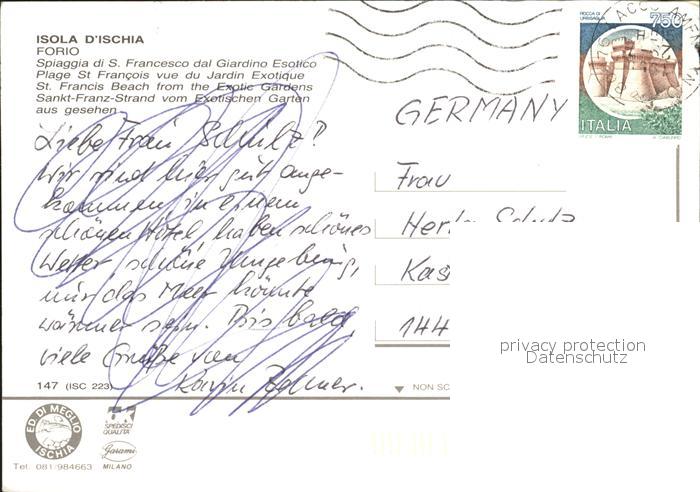 ISOLA D'ISCHIA
FORIO
Spiaggia di S. Francesco dal Giardino Esotico
Plage St François vue du Jardin Exotique
St. Francis Beach from the Exotic Gardens
Sankt-Franz-Strand vom Exotischen Garten
aus gesehen
Liebe Frau Schulz!
Wir sind hier gut ange-
kommen, in einem
schönen Hotel, haben schönes
Wetter schöne Umgebung,
nur das Meer könnte
wärmer sein. Bis bald,
viele Grüße von
Karin
147 (ISC 223)
ED. DI MEGLIO
ISCHIA
Tel. 081/984663
SPEDISCI
QUALITÀ
Garami
MILANO
ROCCA DI
URBISAGLIA
750
ITALIA
GERMANY
Frau
Kas
144
NON SC
privacy protection
Datenschutz